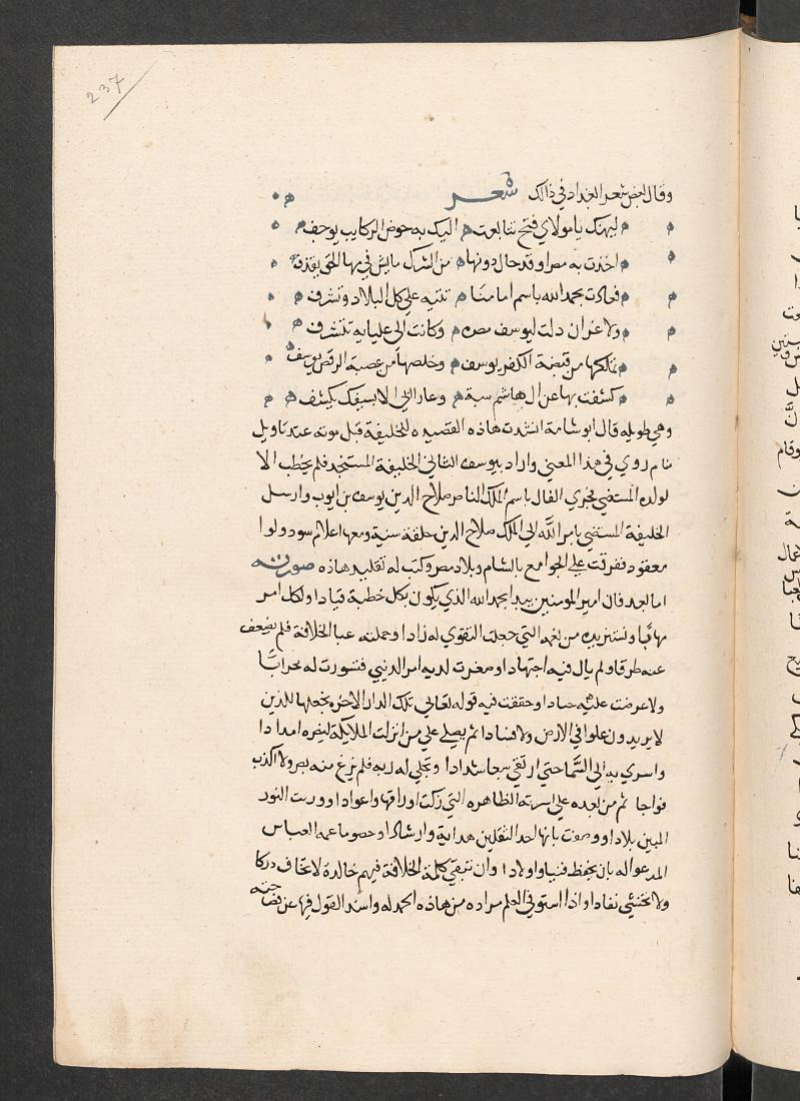 237
وقال بعض شعر البغداد في ذالك شعر
ليهنك يا مولاي فتح تتابعت اليك به حوض الركايب يوجف
اخذت به مصرا وقد حال دونها من الشرك مايس في بها الحق يقذف
فعادت بحمد الله باسم امامنا تتيه علي كل البلاد وتشرف
ولا غران دلت ليوسف مصره وكانت الي عليايه تتشرف
تملكها من قبضة الكفر يوسف وخلصها من عصبة الرفض يوسف
كشفت بها عن ال هاشم سبة وعارا ابي الا بسيفك يكشف
وهي طويله قال ابو شامة انشدت هاذه القصيده للخليفة قبل موته عند تاويل
منام روي في هذا المعني واراد بيوسف الثاني الخليفة المستنجد فلم يخطب الا
لولده المستضي فجري الفال باسم الملك الناصر صلاح الدين يوسف بن ايوب وارسل
الخليفة المستضي بامر الله الي الملك صلاح الدين خلعة سنية ومعها اعلام سود ولوا
معقود ففرقت علي الجوامع بالشام وبلاد مصر وكتب له تقليد هاذه صورته
اما بعد فان امير المومنين يبدا بحمد الله الذي يكون لكل خطبة قيادا ولكل امر
مهادا ويستزيده من نعمه التي جعلت التقوي له زادا وحملته عبا الخلافة فلم يضعف
عنه طرقا ولم يال فيه اجتهادا وصغرت لديه امر الدنيي فتسورت له محرابا
ولا عرضت عليه جيادا وحققت فيه قوله تعالي تلك الدار الاخره نجعلها للذين
لا يريدون علوا في الارض ولا فسادا ثم يصلي علي من انزلت الملايكة لنصره امدادا
واسري به الي السما حتي ارتقي سبعا شدادا وتجلي له ربه فلم يزغ منه بصر ولا اكذب
فوادا ثم من بعده علي اسرته الظاهره التي زكت اوراقها واعوادا وورثت النور
المبين بلادا ووصفت بانها احد الثقلين هداية وارشادا وخصوصا عمه العباس
المدعوا له بان يحفظ فنيا واولادا وان تبقي كلمة الخلافة فيهم خالدة لا تخاف دركا
ولا تخشي نفادا واذا استوفي العلم مراده من هاذه الحمد له واسند القول فيها عن